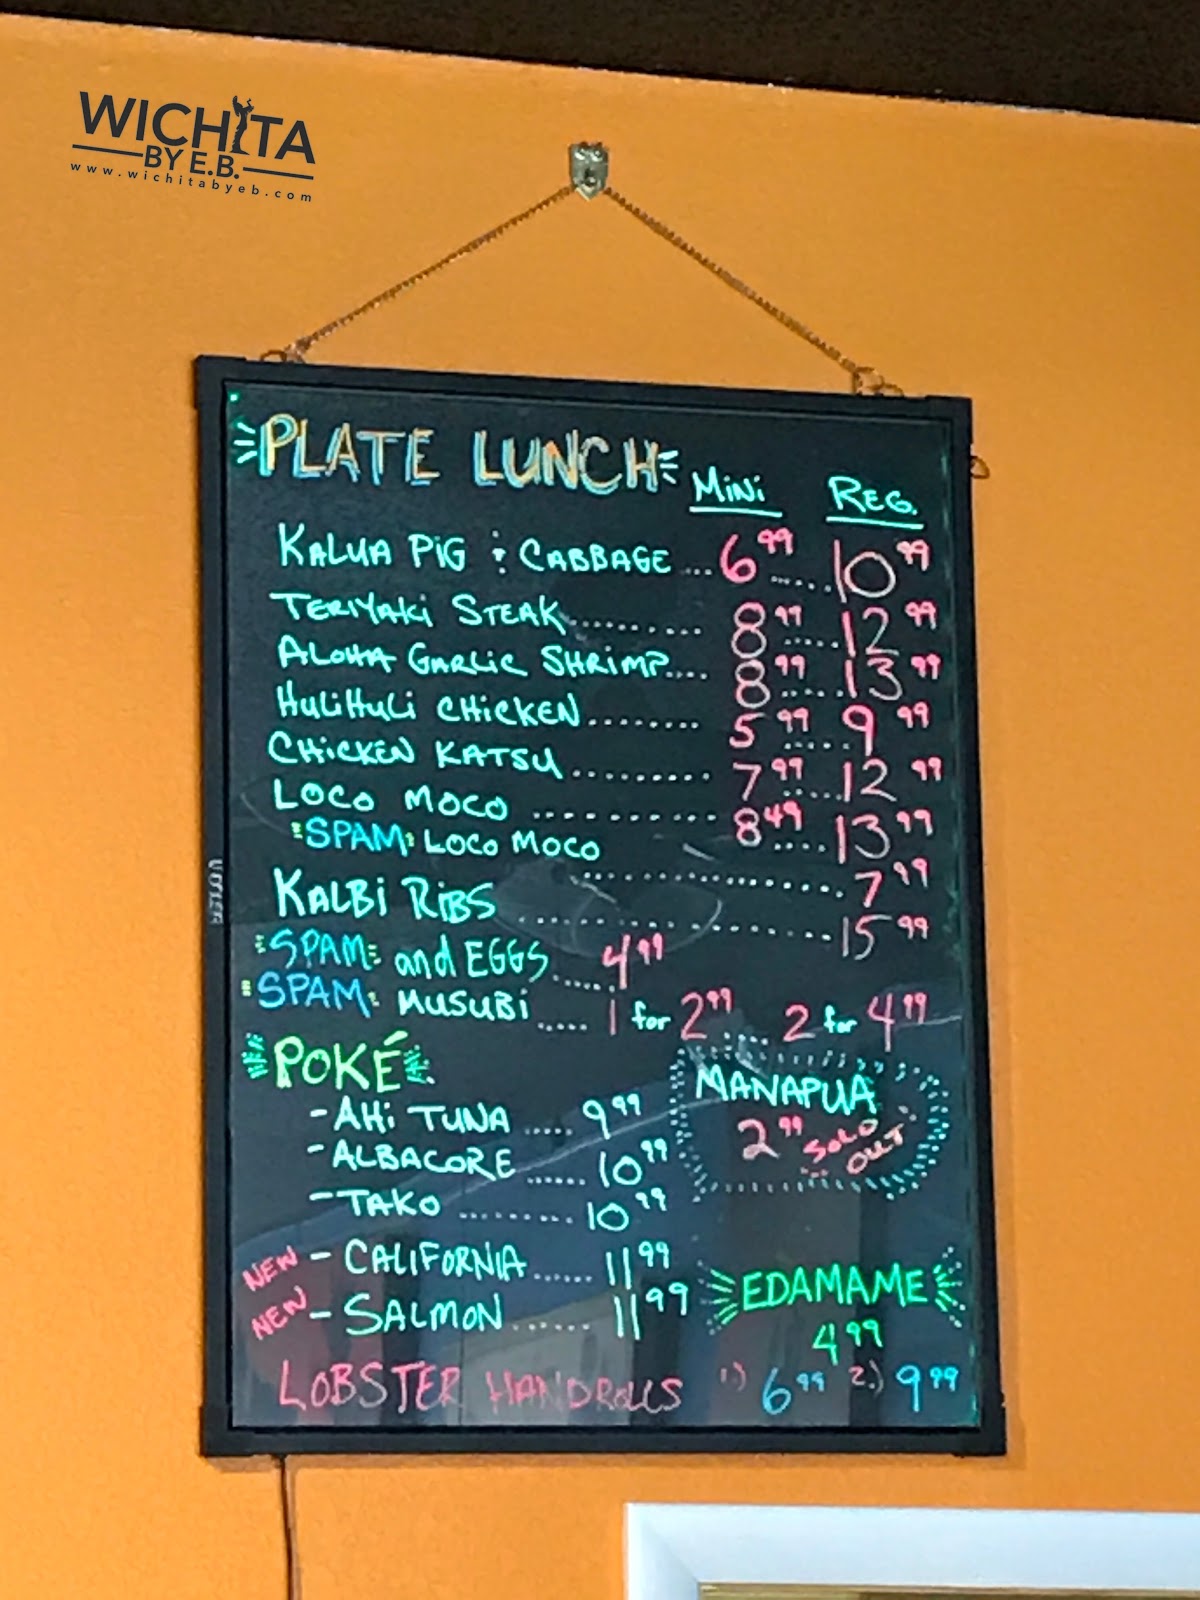 WICHITA
BY E.B.
www.wichitabyeb.com
PLATE LUNCH Mini REG.
KALUA PiG & CABBAGE ... 6.99 ..... 10.99
TERiYAKi STEAK .......... 8.99 ..... 12.99
ALOHA GARLiC SHRIMP .... 8.99 ..... 13.99
HuLiHuLi CHiCKEN ........ 5.99 ..... 9.99
CHiCKEN KATSU ......... 7.99 ..... 12.99
LOCO MOCO ........... 8.49 .... 13.99
SPAM LOCO MOCO .................... 7.99
KALBi RiBS .................... 15.99
SPAM and EGGS ..... 4.99
SPAM MUSUBi ..... 1 for 2.99 2 for 4.99
POKÉ
- AHi TUNA ..... 9.99
- ALBACORE ...... 10.99
- TAKO ......... 10.99
NEW - CALIFORNIA ...... 11.99
NEW - SALMON ...... 11.99
MANAPUA
2.99 SOLD OUT
EDAMAME
4.99
LOBSTER HANDROLLS 1.) 6.99 2.) 9.99